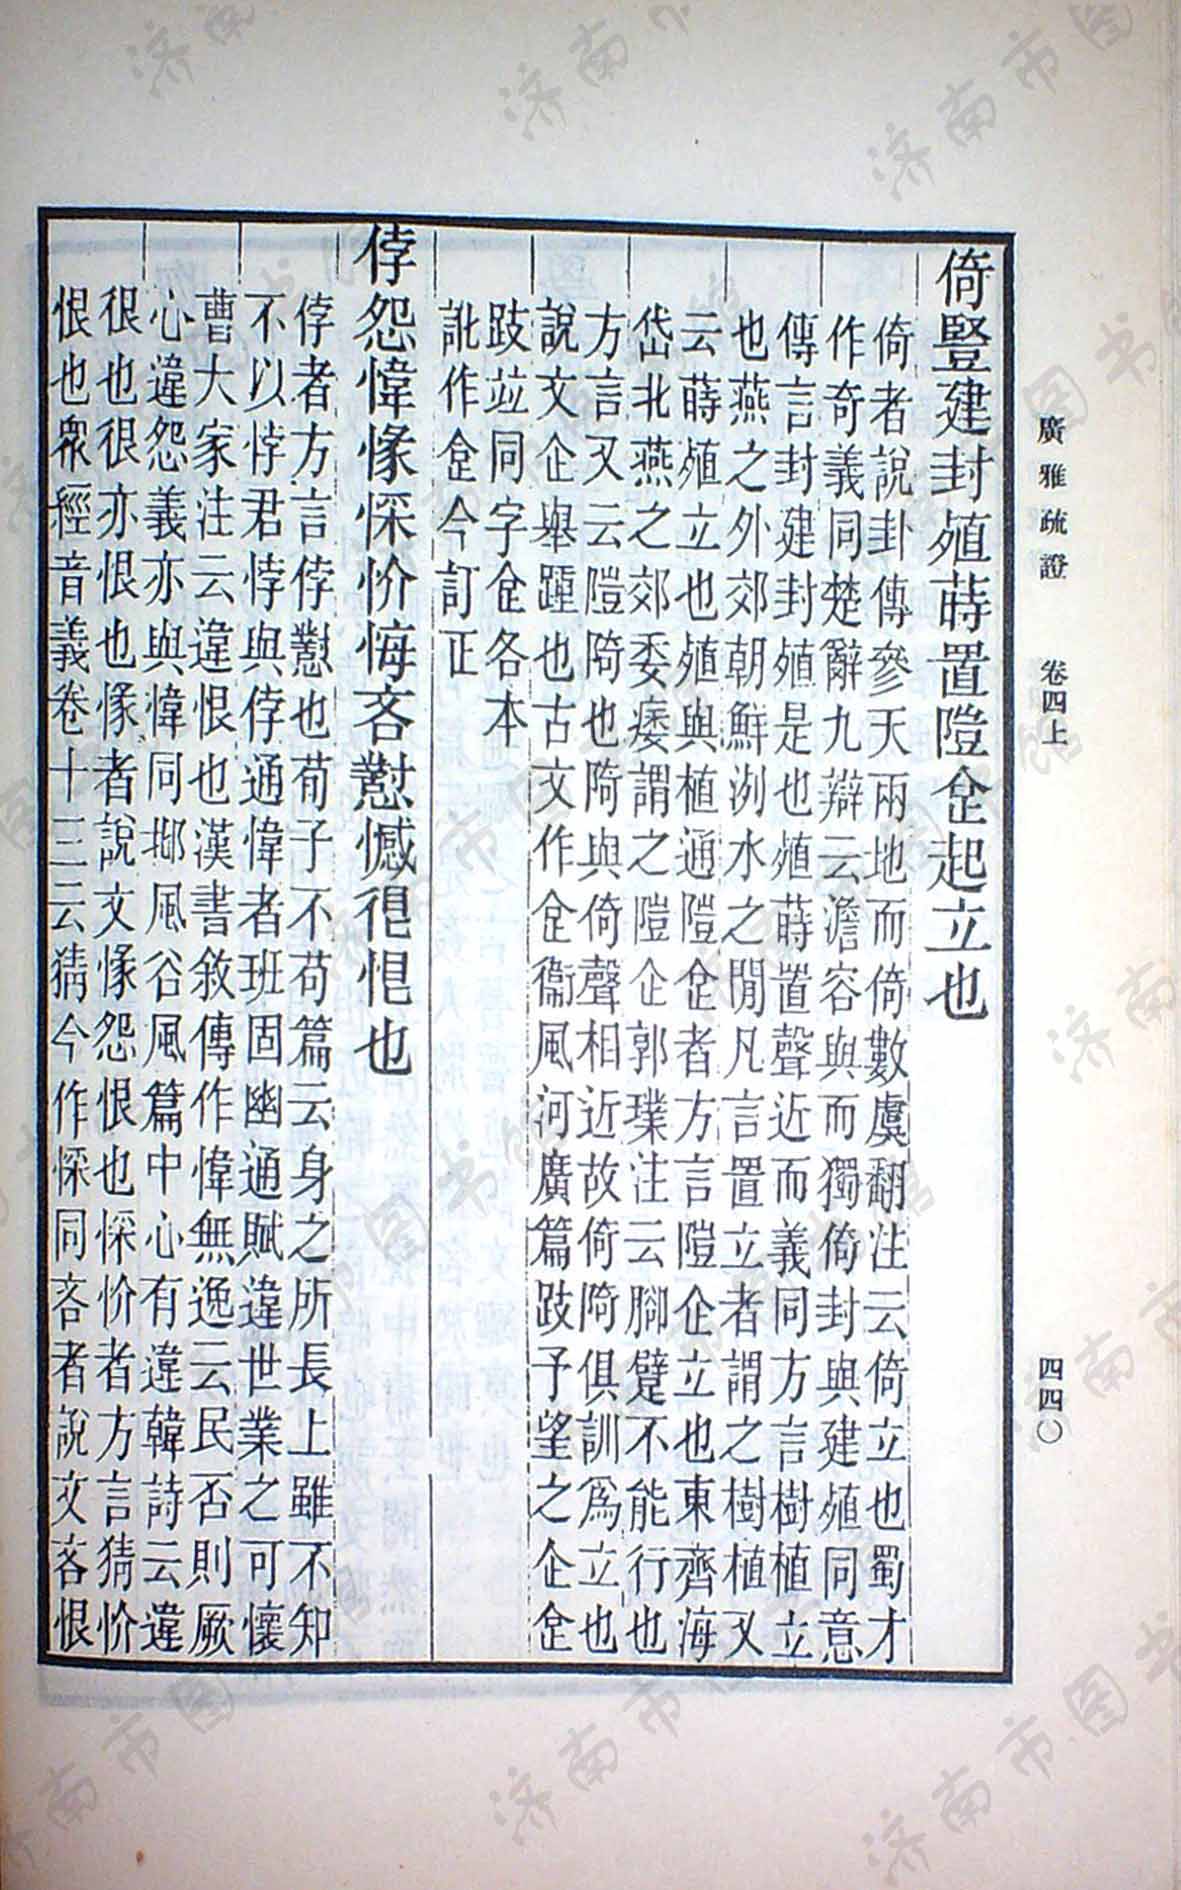 廣雅疏證 卷四上 四四〇
倚豎建封殖蒔置隑企起立也
倚者說卦傳參天兩地而倚數虞翻注云倚立也蜀才
作奇義同楚辭九辯云澹容與而獨倚封與建殖同意
傳言封建封殖是也殖蒔置聲近而義同方言樹植立
也燕之外郊朝鮮洌水之閒凡言置立者謂之樹植又
云蒔殖立也殖與植通隑企者方言隑企立也東齊海
岱北燕之郊委痿謂之隑企郭璞注云腳躄不能行也
方言又云隑陭也陭與倚聲相近故倚陭俱訓爲立也
說文企舉踵也古文作𠈮衞風河廣篇跂予望之企𠈮
跂竝同字𠈮各本
訛作㑒今訂正
㤄怨愇㥟㥒忦悔吝懟憾很悒也
㤄者方言㤄懟也荀子不苟篇云身之所長上雖不知
不以悖君悖與㤄通愇者班固幽通賦違世業之可懷
曹大家注云違恨也漢書敘傳作愇無逸云民否則厥
心違怨義亦與愇同邶風谷風篇中心有違韓詩云違
很也很亦恨也㥟者說文㥟怨恨也㥒忦者方言猜忦
恨也眾經音義卷十三云猜今作㥒同吝者說文吝恨